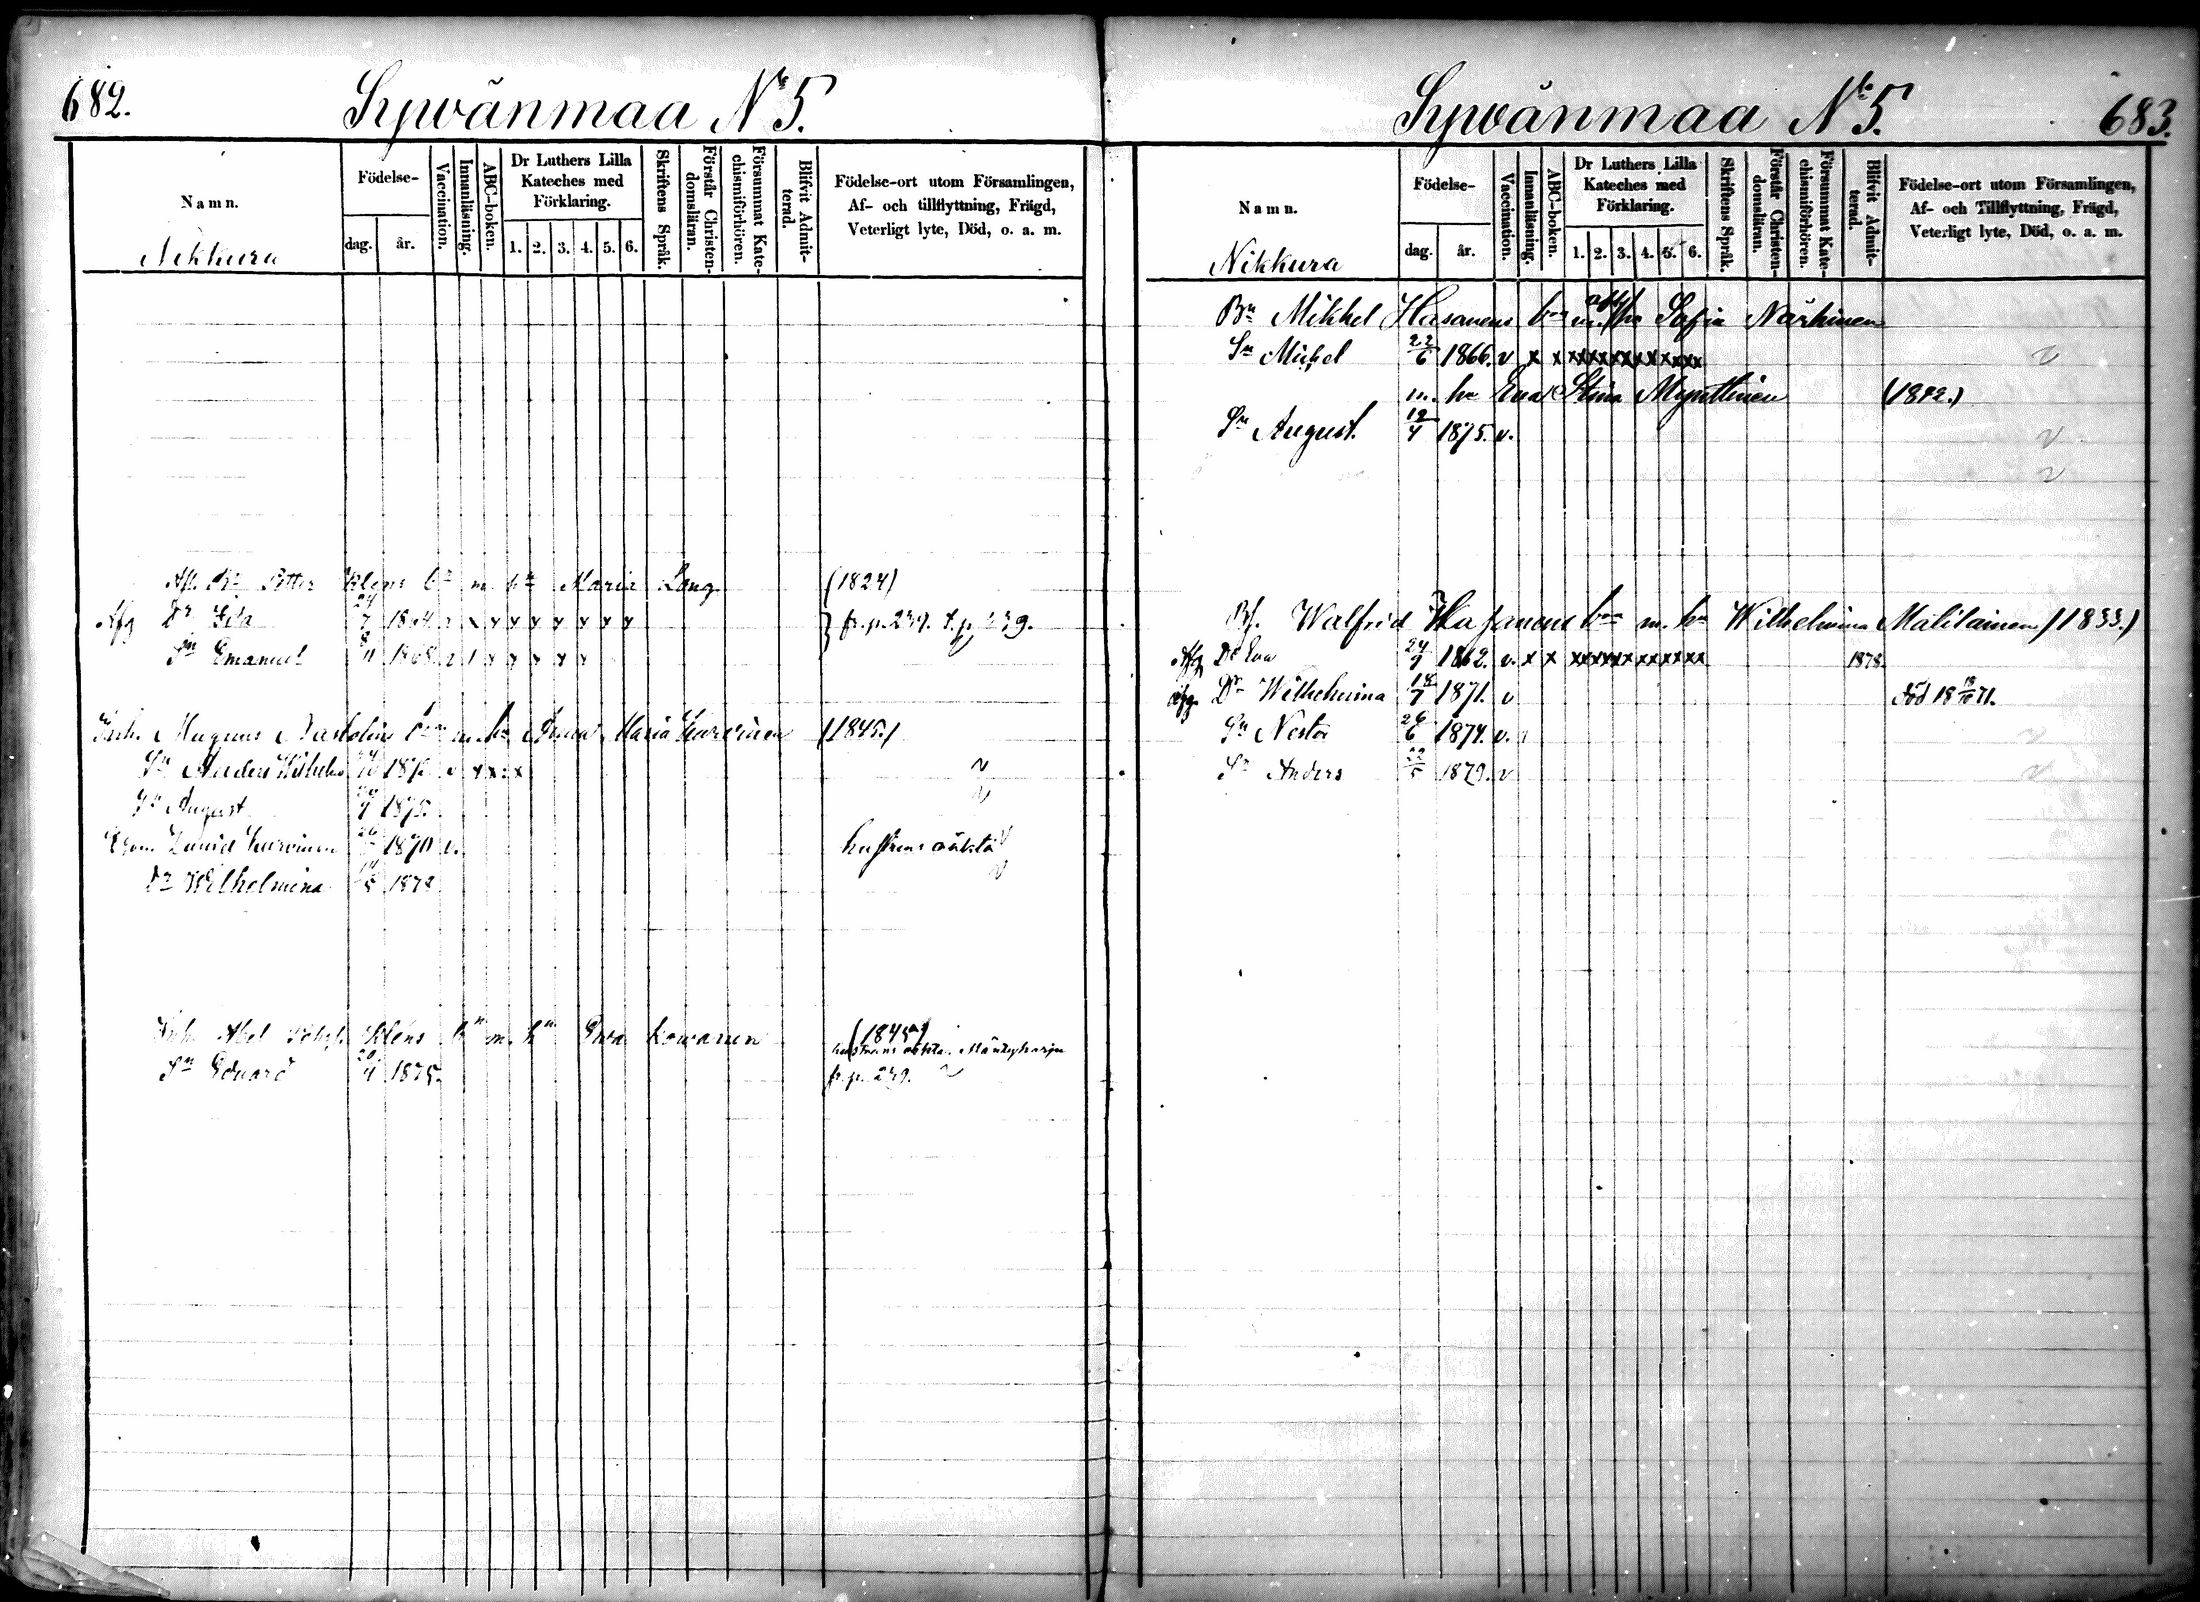 682.
Sywänmaa No 5.
Namn.
Födelse-
dag.
år.
Vaccination.
Innanläsning.
ABC-boken.
Dr Luthers Lilla
Kateches med
Förklaring.
1. 2. 3. 4. 5. 6.
Skriftens Språk.
Förstår Christen-
domsläran.
Försummat Kate-
chismiförhören.
Blifvit Admit-
terad.
Födelse-ort utom Församlingen,
Af- och tillflyttning, Frägd,
Veterligt lyte, Död, o. a. m.
Nikkura
Petter Klens bn m. hn Maria Lang (1824)
Afg Dr Ida 24/7 x x x x x x x x
Sn Emanuel 8/11 1868 v x x x x x
Inh. Magnus bn m. hn Anna Maria Kurvinen (1845)
Sn Wilhelm
Sn August 1875.
David Kurvinen 26 1870 v. hustruns oäkta
Dr Wilhelmina 1878
Inh. Abel Klens bn m. hn Ewa Kowanen (1845)
hustruns oäkta. Mäntyharju
Sn Eduard 20/4 1875. fr. p. 249.
Sywänmaa No 5.
683.
Namn.
Födelse-
dag.
år.
Vaccination.
Innanläsning.
ABC-boken.
Dr Luthers Lilla
Kateches med
Förklaring.
1. 2. 3. 4. 5. 6.
Skriftens Språk.
Förstår Christen-
domsläran.
Försummat Kate-
chismiförhören.
Blifvit Admit-
terad.
Födelse-ort utom Församlingen,
Af- och Tillflyttning, Frägd,
Veterligt lyte, Död, o. a. m.
Nikkura
Bn Mikkel Hasanens bn m. hn Sofia Närhinen
Sn Mickel 22/6 1866. v x x xxxxxxxxxxx v
m. hn Eva Stina Mynttinen (1842.)
Sn August. 12/4 1875. v. v
v
Bf. Walfrid Hasanens bn m. hn Wilhelmina Matilainen (1833.)
Afg Dr Eva 24/9 1862. v. x x xxxxxxxxxxx 1878
afg. Dr Wilhelmina 18/7 1871. v död 18 18/10 71.
Sn Nestor 26/6 1874. v. v
Sn Anders 22/5 1879. v v